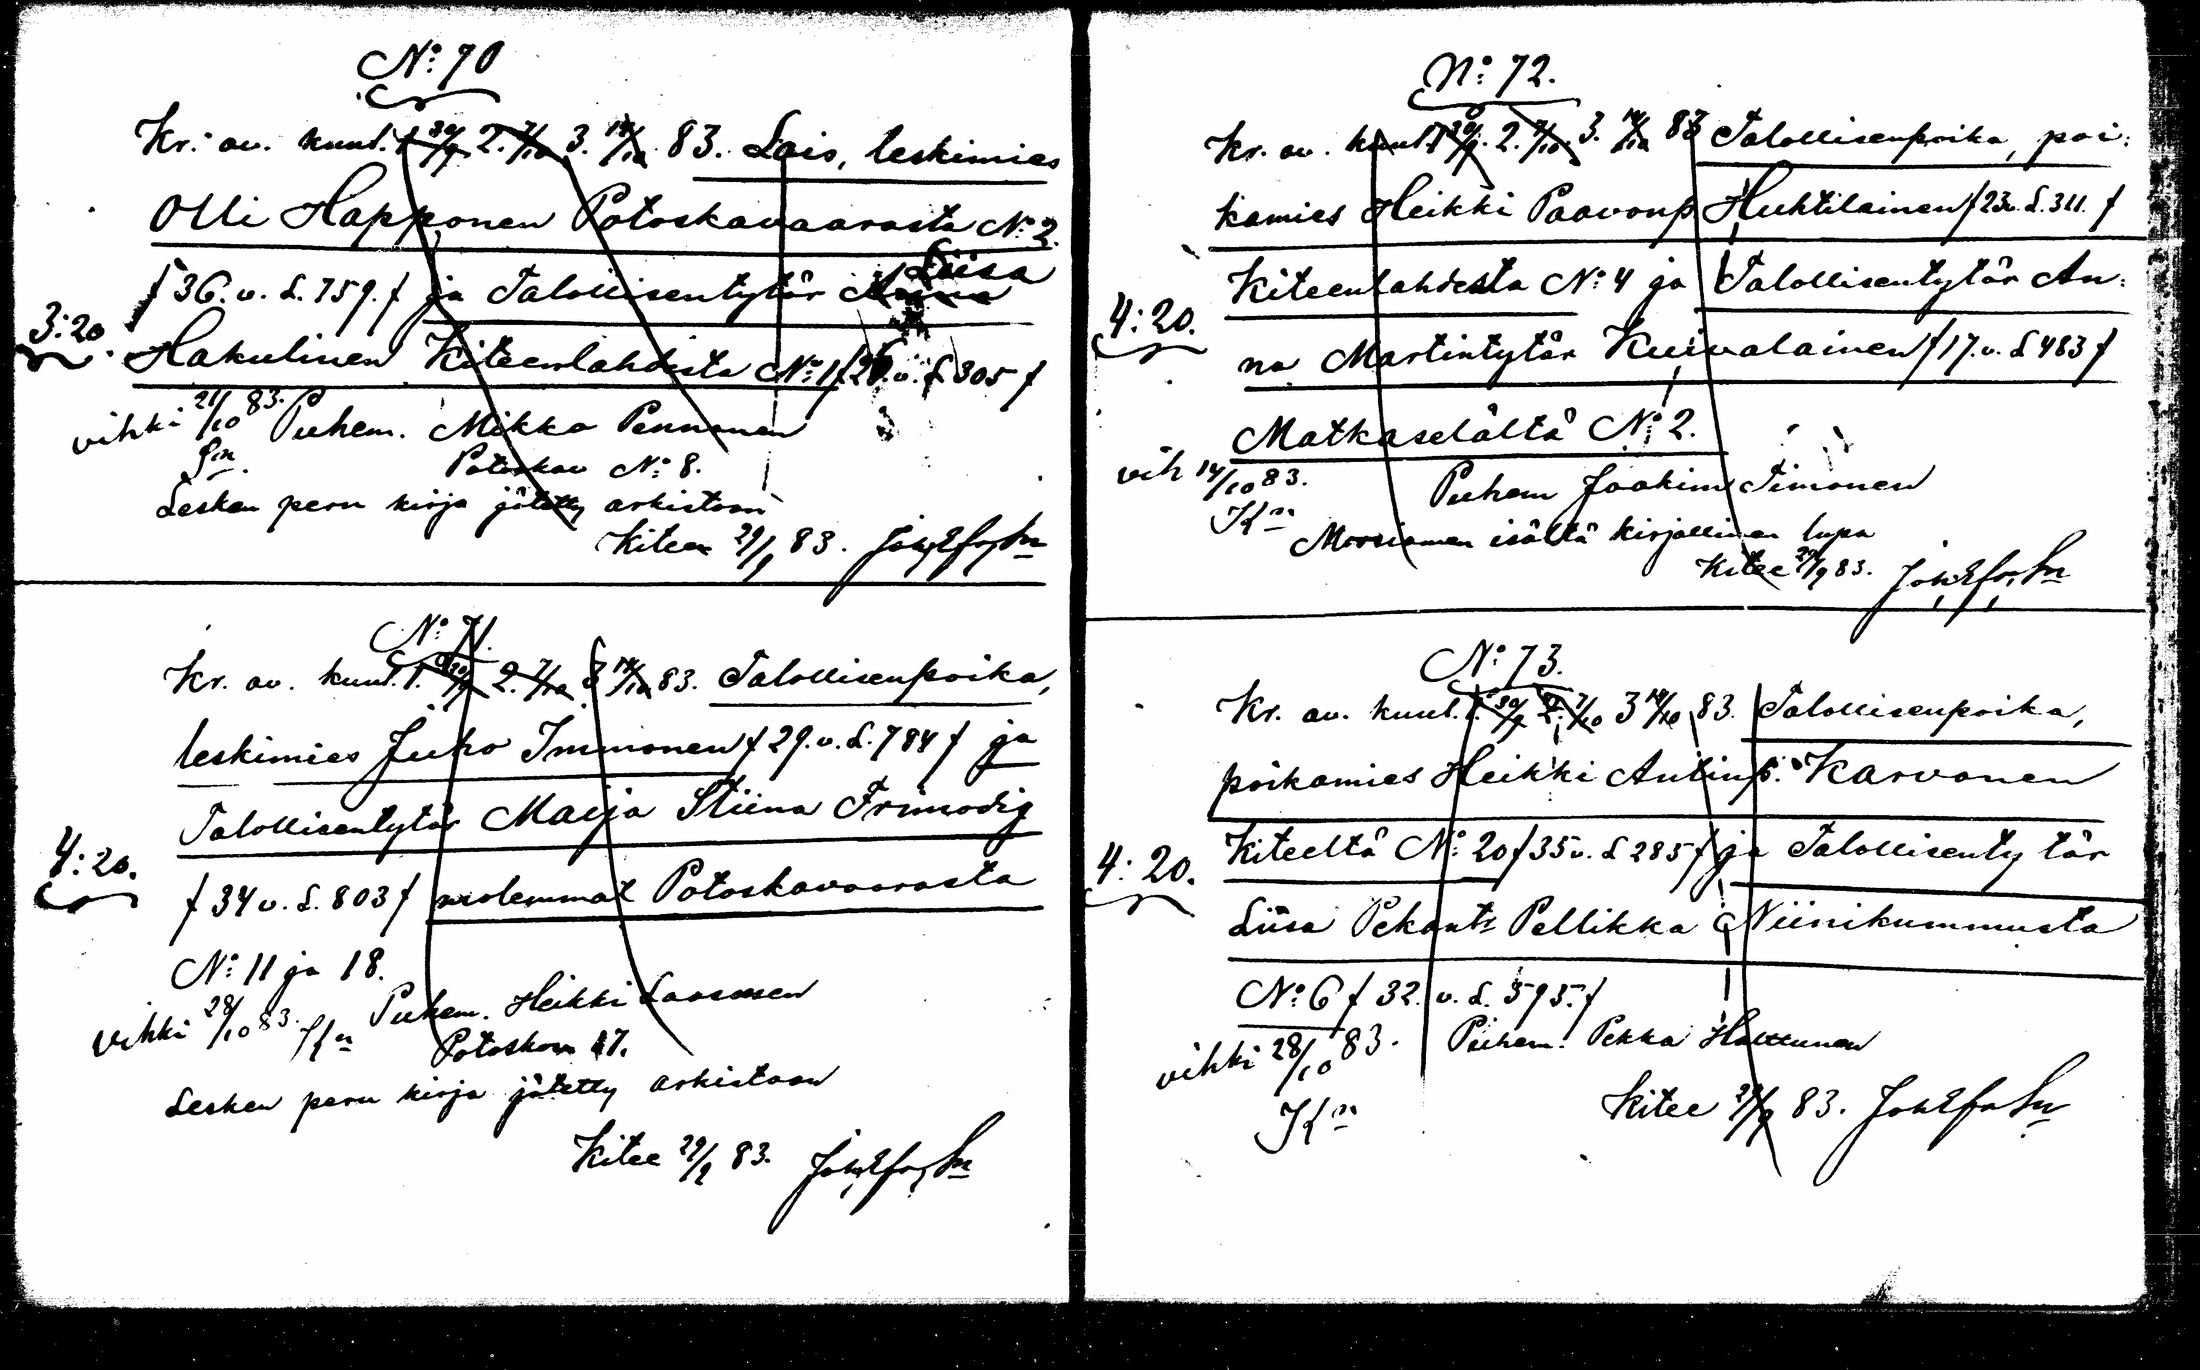 No 70
Kr. av. kuul. 1. 30/9 2. 7/10 3. 14/10 83. Lois, leskimies
Olli Happonen Potoskavaarasta No 2.
Liisa
f 36. v. L. 759. f ja Talollisentytär
3:20
Hakulinen Kiteenlahdesta No 1 f 26. v. L 305 f
vihki 21/10 83. Puhem. Mikko Pennanen
Potoskav No 8.
Lesken peru kirja jätetty arkistoon
Kitee 29/9 83.
No 71.
Kr. av. kuul. 1. 30/9 2. 7/10 3 14/10 83. Talollisenpoika,
leskimies Juho Immonen f 29. v. L. 784 f ja
Talollisentytär Maija Stiina Frimodig
4:20.
f 34 v. L. 803 f molemmat Potoskavaarasta
No 11 ja 18.
vihki 28/10 83. Puhem. Heikki Laasonen
Potoskav 17.
Lesken peru kirja jätetty arkistoon
Kitee 29/9 83.
No 72.
Kr. av. kuul. 1 30/9. 2. 7/10 3. 14/10 83 Talollisenpoika, poi:
kamies Heikki Paavonp Huhtilainen f 23 v. L. 311. f
Kiteenlahdesta No 4 ja Talollisentytär An:
4:20.
na Martintytär Kuivalainen f 17. v. L 483 f
Matkaselältä No 2.
vih 14/10 83. Puhem Joakim Timonen
Kn
Morsiamen isältä kirjallinen lupa
Kitee 29/9 83.
No 73.
Kr. av. kuul. 1. 30/9 2. 7/10 3 14/10 83. Talollisenpoika,
poikamies Heikki Antinp. Karvonen
Kiteeltä No 20 f 35 v. L 285 f ja Talollisenty tär
4:20.
Liisa Pekantr Pellikka Niinikummusta
No 6 f 32. v. L. 595. f
vihki 28/10 83. Puhem. Pekka Halttunen
Kn
Kitee 29/9 83.